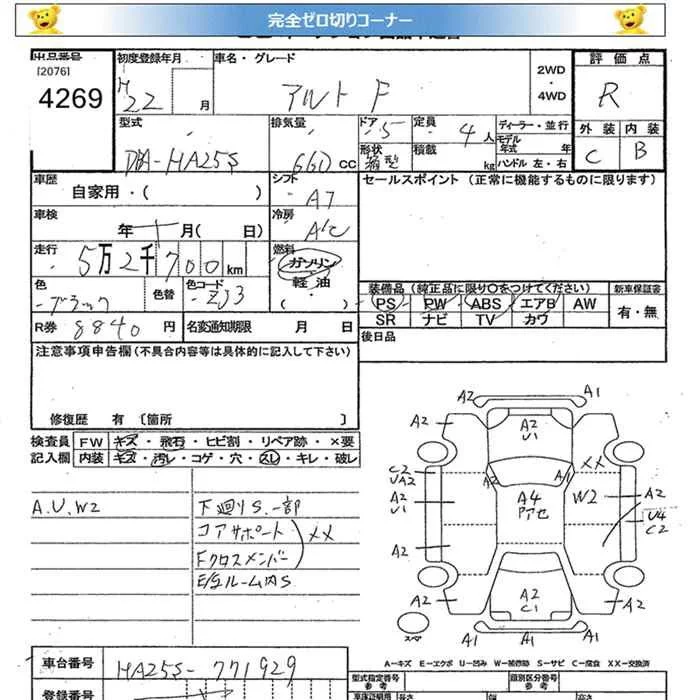 完全ゼロ切りコーナー
出品番号 初度登録年月 車名・グレード 評価点
[2076]
4269 H 22 月 アルト F 2WD 4WD R
型式 排気量 ドア 5 定員 4人 ディーラー・並行 外装 内装
モデル年式 年
DBA-HA25S 660 CC 形状 箱型 積載 kg ハンドル 左・右 C B
車歴 シフト セールスポイント(正常に機能するものに限ります)
自家用・( ) A7
車検 冷房
年 月( 日) A/C
走行 5万2千700km 燃料 ガソリン
軽油
( )
色 色替 色コード 装備品(純正品に限り○をつけてください) 新車保証書
ブラック ZJ3 PS PW ABS エアB AW 有・無
SR ナビ TV カワ
R券 8840 円 名変通知期限 月 日 後日品
注意事項申告欄(不具合内容等は具体的に記入して下さい)
修復歴 有〔箇所 〕
検査員 FW キズ・飛石・ヒビ割・リペア跡・×要
記入欄 内装 キズ・汚レ・コゲ・穴・スレ・キレ・破レ
A.U.W2 下廻りS.一部
コアサポート XX
Fクロスメンバー
E/gルーム内S
A2 A1
A2 A2 U1 A1
C2 UA2 A2 A1 XX
A2 U1 A4 アセ W2 A2
U4 C2
A2
A2 A2 C1 A2
スペア A1 A1 A1
A-キズ E-エクボ U-凹み W-補修跡 S-サビ C-腐食 XX-交換済
車台番号 HA25S-771929 型式指定番号 類別区分番号
参考 参考
登録番号 車検証明用 長さ 幅 高さ